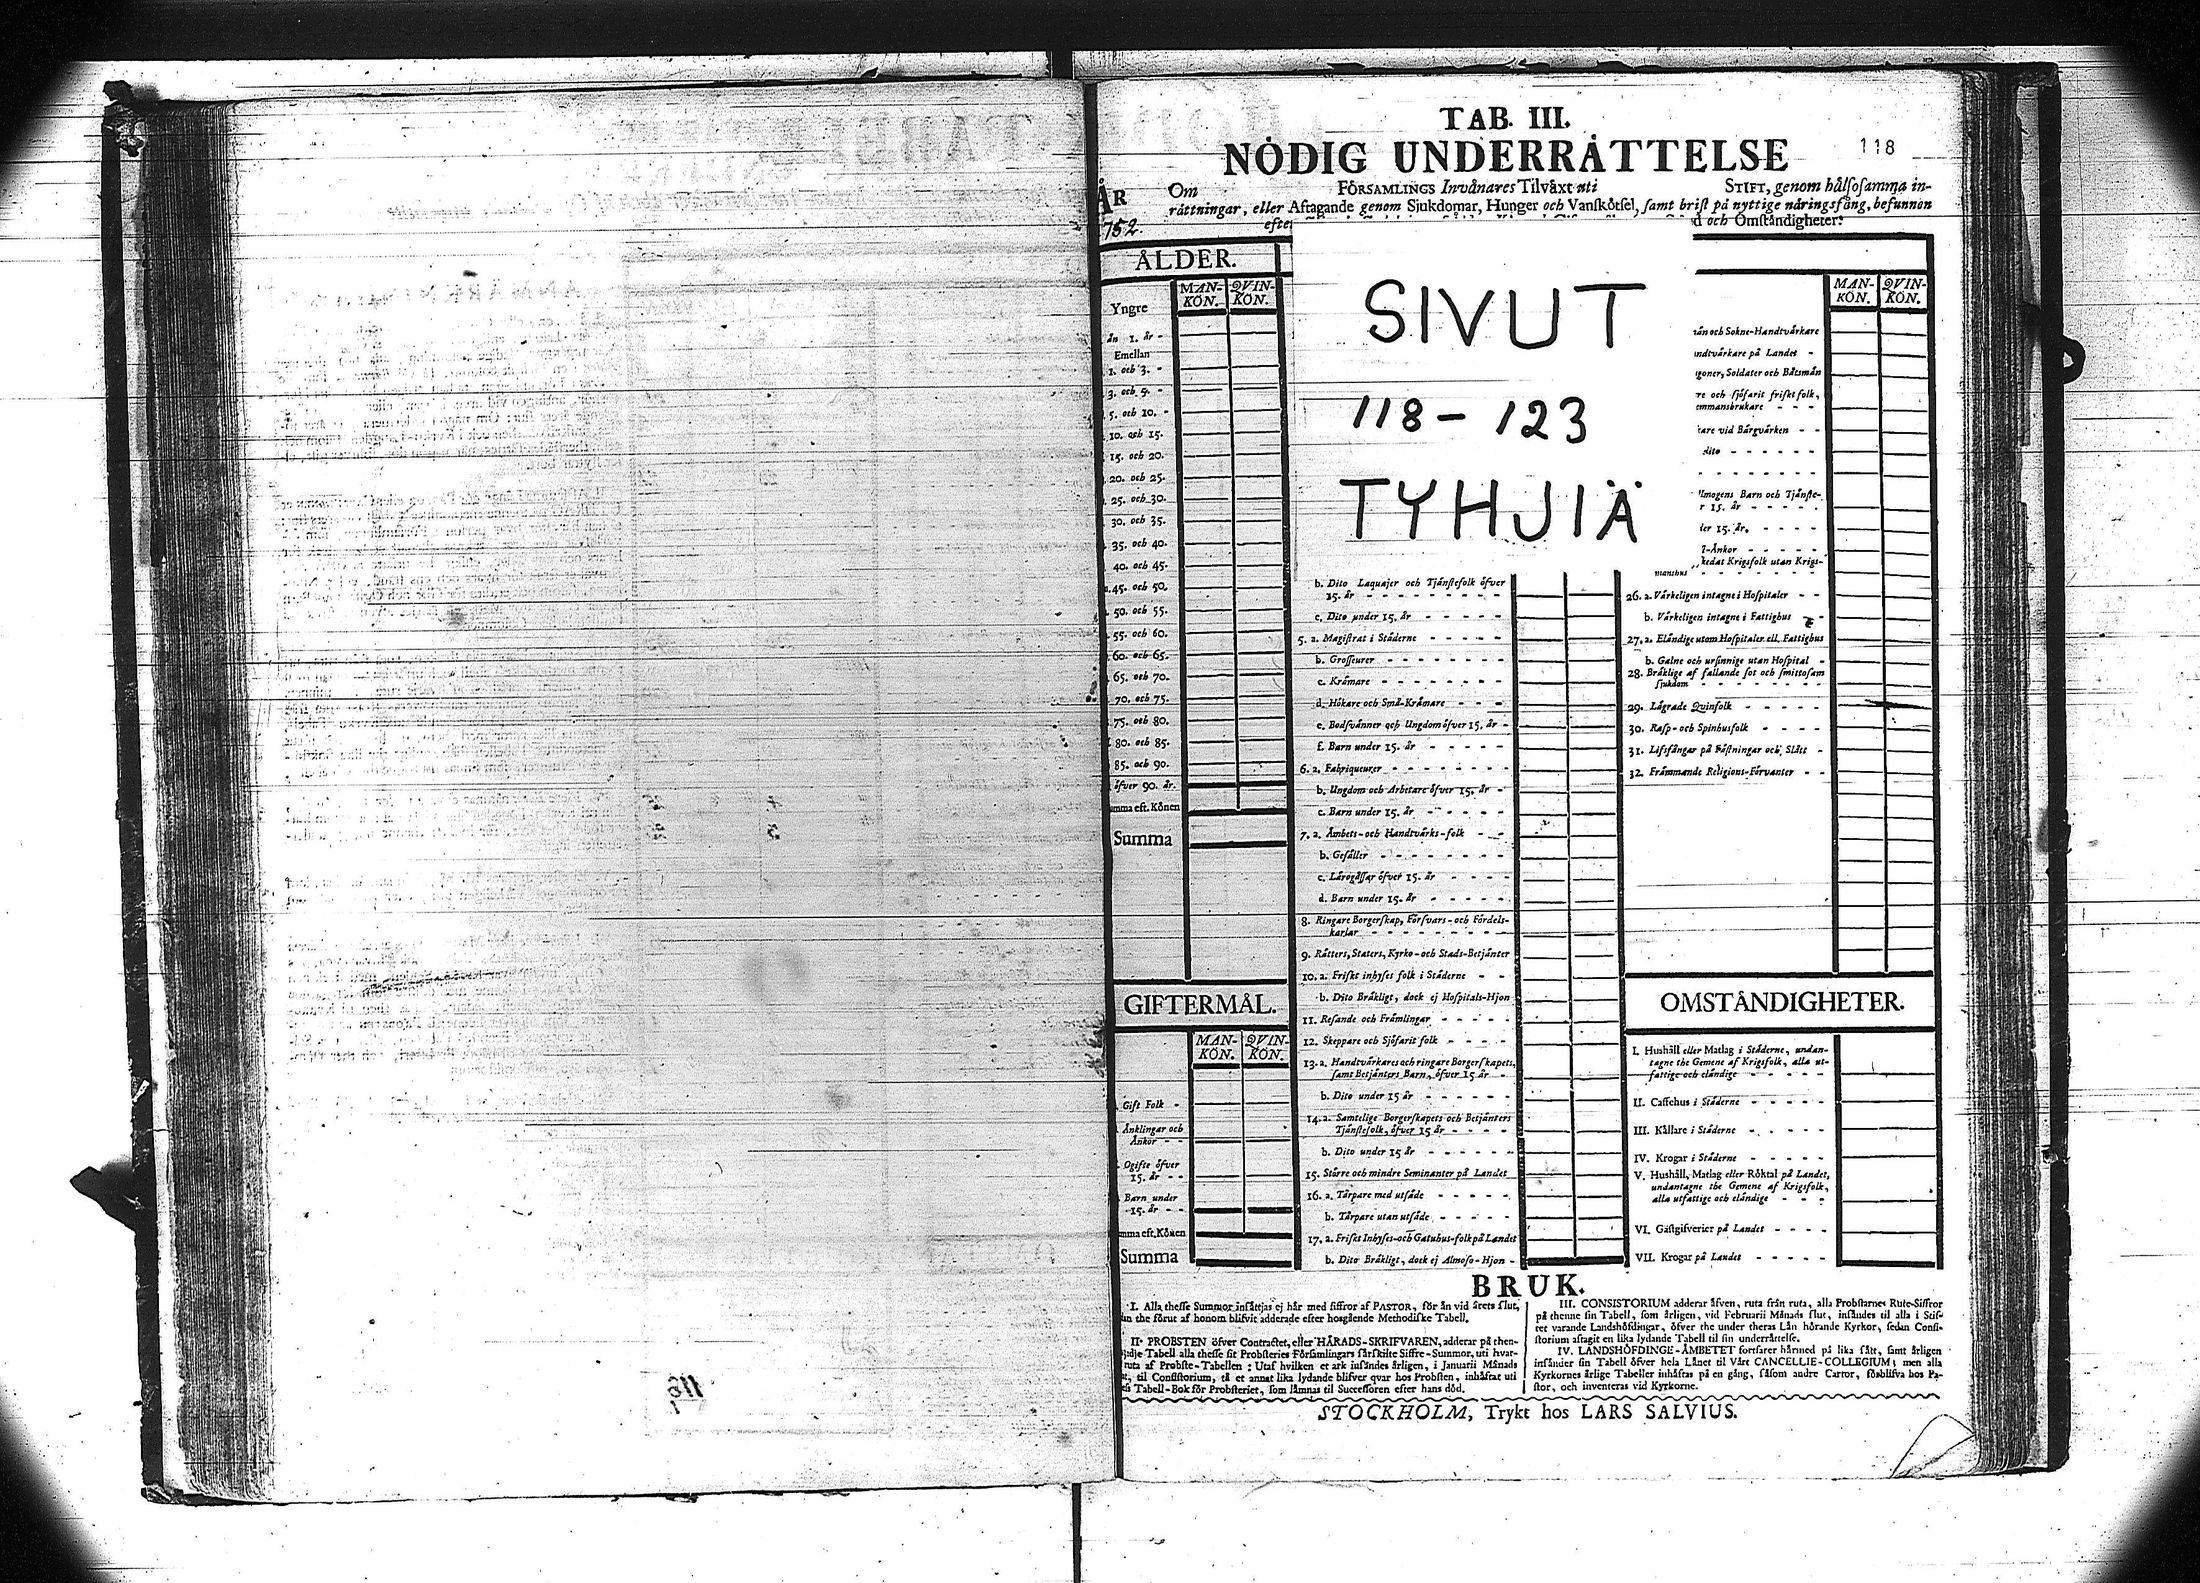 TAB. III.
NÖDIG UNDERRÄTTELSE
118
ÅR
1752.
Om FÖRSAMLINGS Invånares Tilväxt uti STIFT, genom hälsosamma in-
rättningar, eller Aftagande genom Sjukdomar, Hunger och Vanskötsel, samt brist på nyttige näringsfång, befunnen
och Omständigheter:
SIVUT
118 – 123
TYHJIÄ
ÅLDER.
MAN-KÖN. QVIN-KÖN.
Yngre
än 1. år -
Emellan
1. och 3. -
3. och 5. -
5. och 10. -
10. och 15.
15. och 20.
20. och 25.
25. och 30.
30. och 35.
35. och 40.
40. och 45.
45. och 50.
50. och 55.
55. och 60.
60. och 65.
65. och 70.
70. och 75.
75. och 80.
80. och 85.
85. och 90.
öfver 90. år.
mma eft. Könen
Summa
GIFTERMÅL.
MAN-KÖN. QVIN-KÖN.
Gift Folk -
Änklingar och
Änkor - -
Ogifte öfver
15. år - -
Barn under
15. år - -
mma eft. Könen
Summa
b. Dito Laquajer och Tjänstefolk öfver
15. år - - - - - - - -
c. Dito under 15. år - - - - -
5. a. Magistrat i Städerne - - - -
b. Grosseurer - - - - - - -
c. Krämare - - - - - - -
d. Hökare och Små-Krämare - - -
e. Bodsvänner och Ungdom öfver 15. år -
f. Barn under 15. år - - - - -
6. a. Fabriqueurer - - - - - - -
b. Ungdom och Arbetare öfver 15. år -
c. Barn under 15. år - - - - -
7. a. Ämbets- och Handtvärks-folk - -
b. Gesäller - - - - - - -
c. Lärogåssar öfver 15. år - - - -
d. Barn under 15. år - - - - -
8. Ringare Borgerskap, Försvars- och Fördels-
karlar - - - - - - - -
9. Rätters, Staters, Kyrko- och Stads-Betjänter
10. a. Friskt inhyses folk i Städerne - -
b. Dito Bräkligt, dock ej Hospitals-Hjon
11. Resande och Främlingar - - - -
12. Skeppare och Sjöfarit folk - - - -
13. a. Handtvärkares och ringare Borgerskapets,
samt Betjänters Barn, öfver 15 år -
b. Dito under 15 år - - - - -
14. a. Samtelige Borgerskapets och Betjänters
Tjänstefolk, öfver 15 år - - - -
b. Dito under 15 år - - - - -
15. Större och mindre Seminanter på Landet
16. a. Tårpare med utsäde - - - - -
b. Tårpare utan utsäde - - - - -
17. a. Friskt Inhyses- och Gatuhus-folk på Landet
b. Dito Bräkligt, dock ej Almoso-Hjon -
MAN-KÖN. QVIN-KÖN.
och Sokne-Handtvärkare
på Landet -
Soldater och Båtsmän
och sjöfarit friskt folk,
vid Bärgvärken - -
dito - - - - - -
Barn och Tjänste-
15. år - - - - -
15. år, - - - -
-Änkor - - - - -
Krigsfolk utan Krigs-
manshus - - - - - - -
26. a. Värkeligen intagne i Hospitaler - -
b. Värkeligen intagne i Fattighus -
27. a. Eländige utom Hospitaler ell. Fattighus
b. Galne och ursinnige utan Hospital -
28. Bräklige af fallande sot och smittosam
sjukdom - - - - - - -
29. Lägrade Qvinfolk - - - - -
30. Rasp- och Spinhusfolk - - - -
31. Lifsfångar på Fästningar och Slått -
32. Främmande Religions-Förvanter - -
OMSTÄNDIGHETER.
I. Hushåll eller Matlag i Städerne, undan-
tagne the Gemene af Krigsfolk, alla ut-
fattige och eländige - - - - -
II. Caffehus i Städerne - - - - -
III. Källare i Städerne - - - - -
IV. Krogar i Städerne - - - - -
V. Hushåll, Matlag eller Röktal på Landet,
undantagne the Gemene af Krigsfolk,
alla utfattige och eländige - - -
VI. Gästgifverier på Landet - - - -
VII. Krogar på Landet - - - - -
BRUK.
I. Alla thesse Summor insättjas ej här med siffror af PASTOR, för än vid årets slut,
än the förut af honom blifvit adderade efter hosgående Methodiske Tabell.
II. PROBSTEN öfver Contractet, eller HÄRADS-SKRIFVAREN, adderar på then-
Tabell alla thesse sit Probsteries Församlingars särskilte Siffre-Summor, uti hvar-
ruta af Probste-Tabellen: Utaf hvilken et ark insändes årligen, i Januarii Månads
til Consistorium, så et annat lika lydande blifver qvar hos Probsten, inhäftat uti
Tabell-Bok för Probsteriet, som lämnas til Successoren efter hans död.
III. CONSISTORIUM adderar äfven, ruta från ruta, alla Probstarnes Rute-Siffror
på thenne sin Tabell, som årligen, vid Februarii Månads slut, insändes til alla i Stif-
tet varande Landshöfdingar, öfver the under theras Län hörande Kyrkor, sedan Consi-
storium aftagit en lika lydande Tabell til sin underrättelse.
IV. LANDSHÖFDINGE-ÄMBETET fortfarer härmed på lika sätt, samt årligen
insänder sin Tabell öfver hela Länet til Vårt CANCELLIE-COLLEGIUM; men alla
Kyrkornes årlige Tabeller inhäftas på en gång, såsom andre Cartor, förblifva hos Pa-
stor, och inventeras vid Kyrkorne.
STOCKHOLM, Trykt hos LARS SALVIUS.